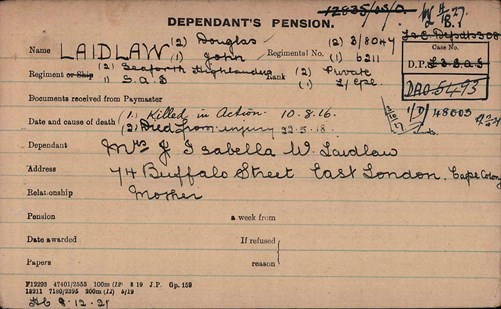 DEPENDANT'S PENSION.
12835/05/D.
J&E Depots 308
Case No.
D.P.
DAO 5493
1/D/48003
Name LAIDLAW (2) Douglas (2) 3/8047
(1) John Regimental No. (1) 6211
Regiment or Ship (2) Seaforth Highlanders Rank (2) Private
(1) S.A.S (1) L/Cpl.
Documents received from Paymaster
Date and cause of death (1) Killed in Action. 10.8.16.
(2) Died from injury 22.5.18.
Dependant Mrs J Isabella W. Laidlaw
Address 74 Buffalo Street East London. Cape Colony
Relationship Mother
Pension a week from
Date awarded If refused
Papers reason
F12293 47401/2553 100m 3 19 J.P. Gp. 159
18211 7180/2395 300m (11) 5/19
8.12.21